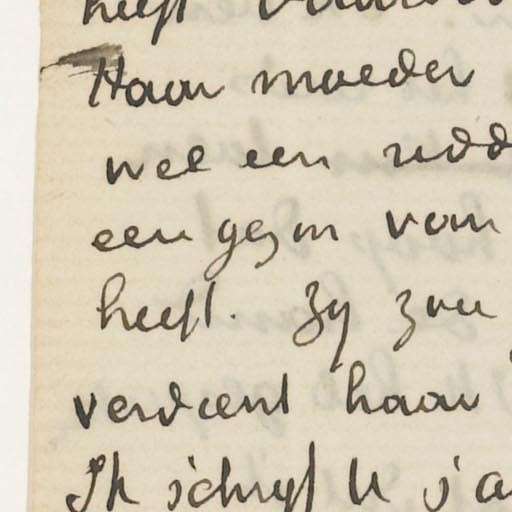 heeft
Haar moeder
wel een
een gezin van
heeft. Zy zou
verdient haar
Ik schryf U